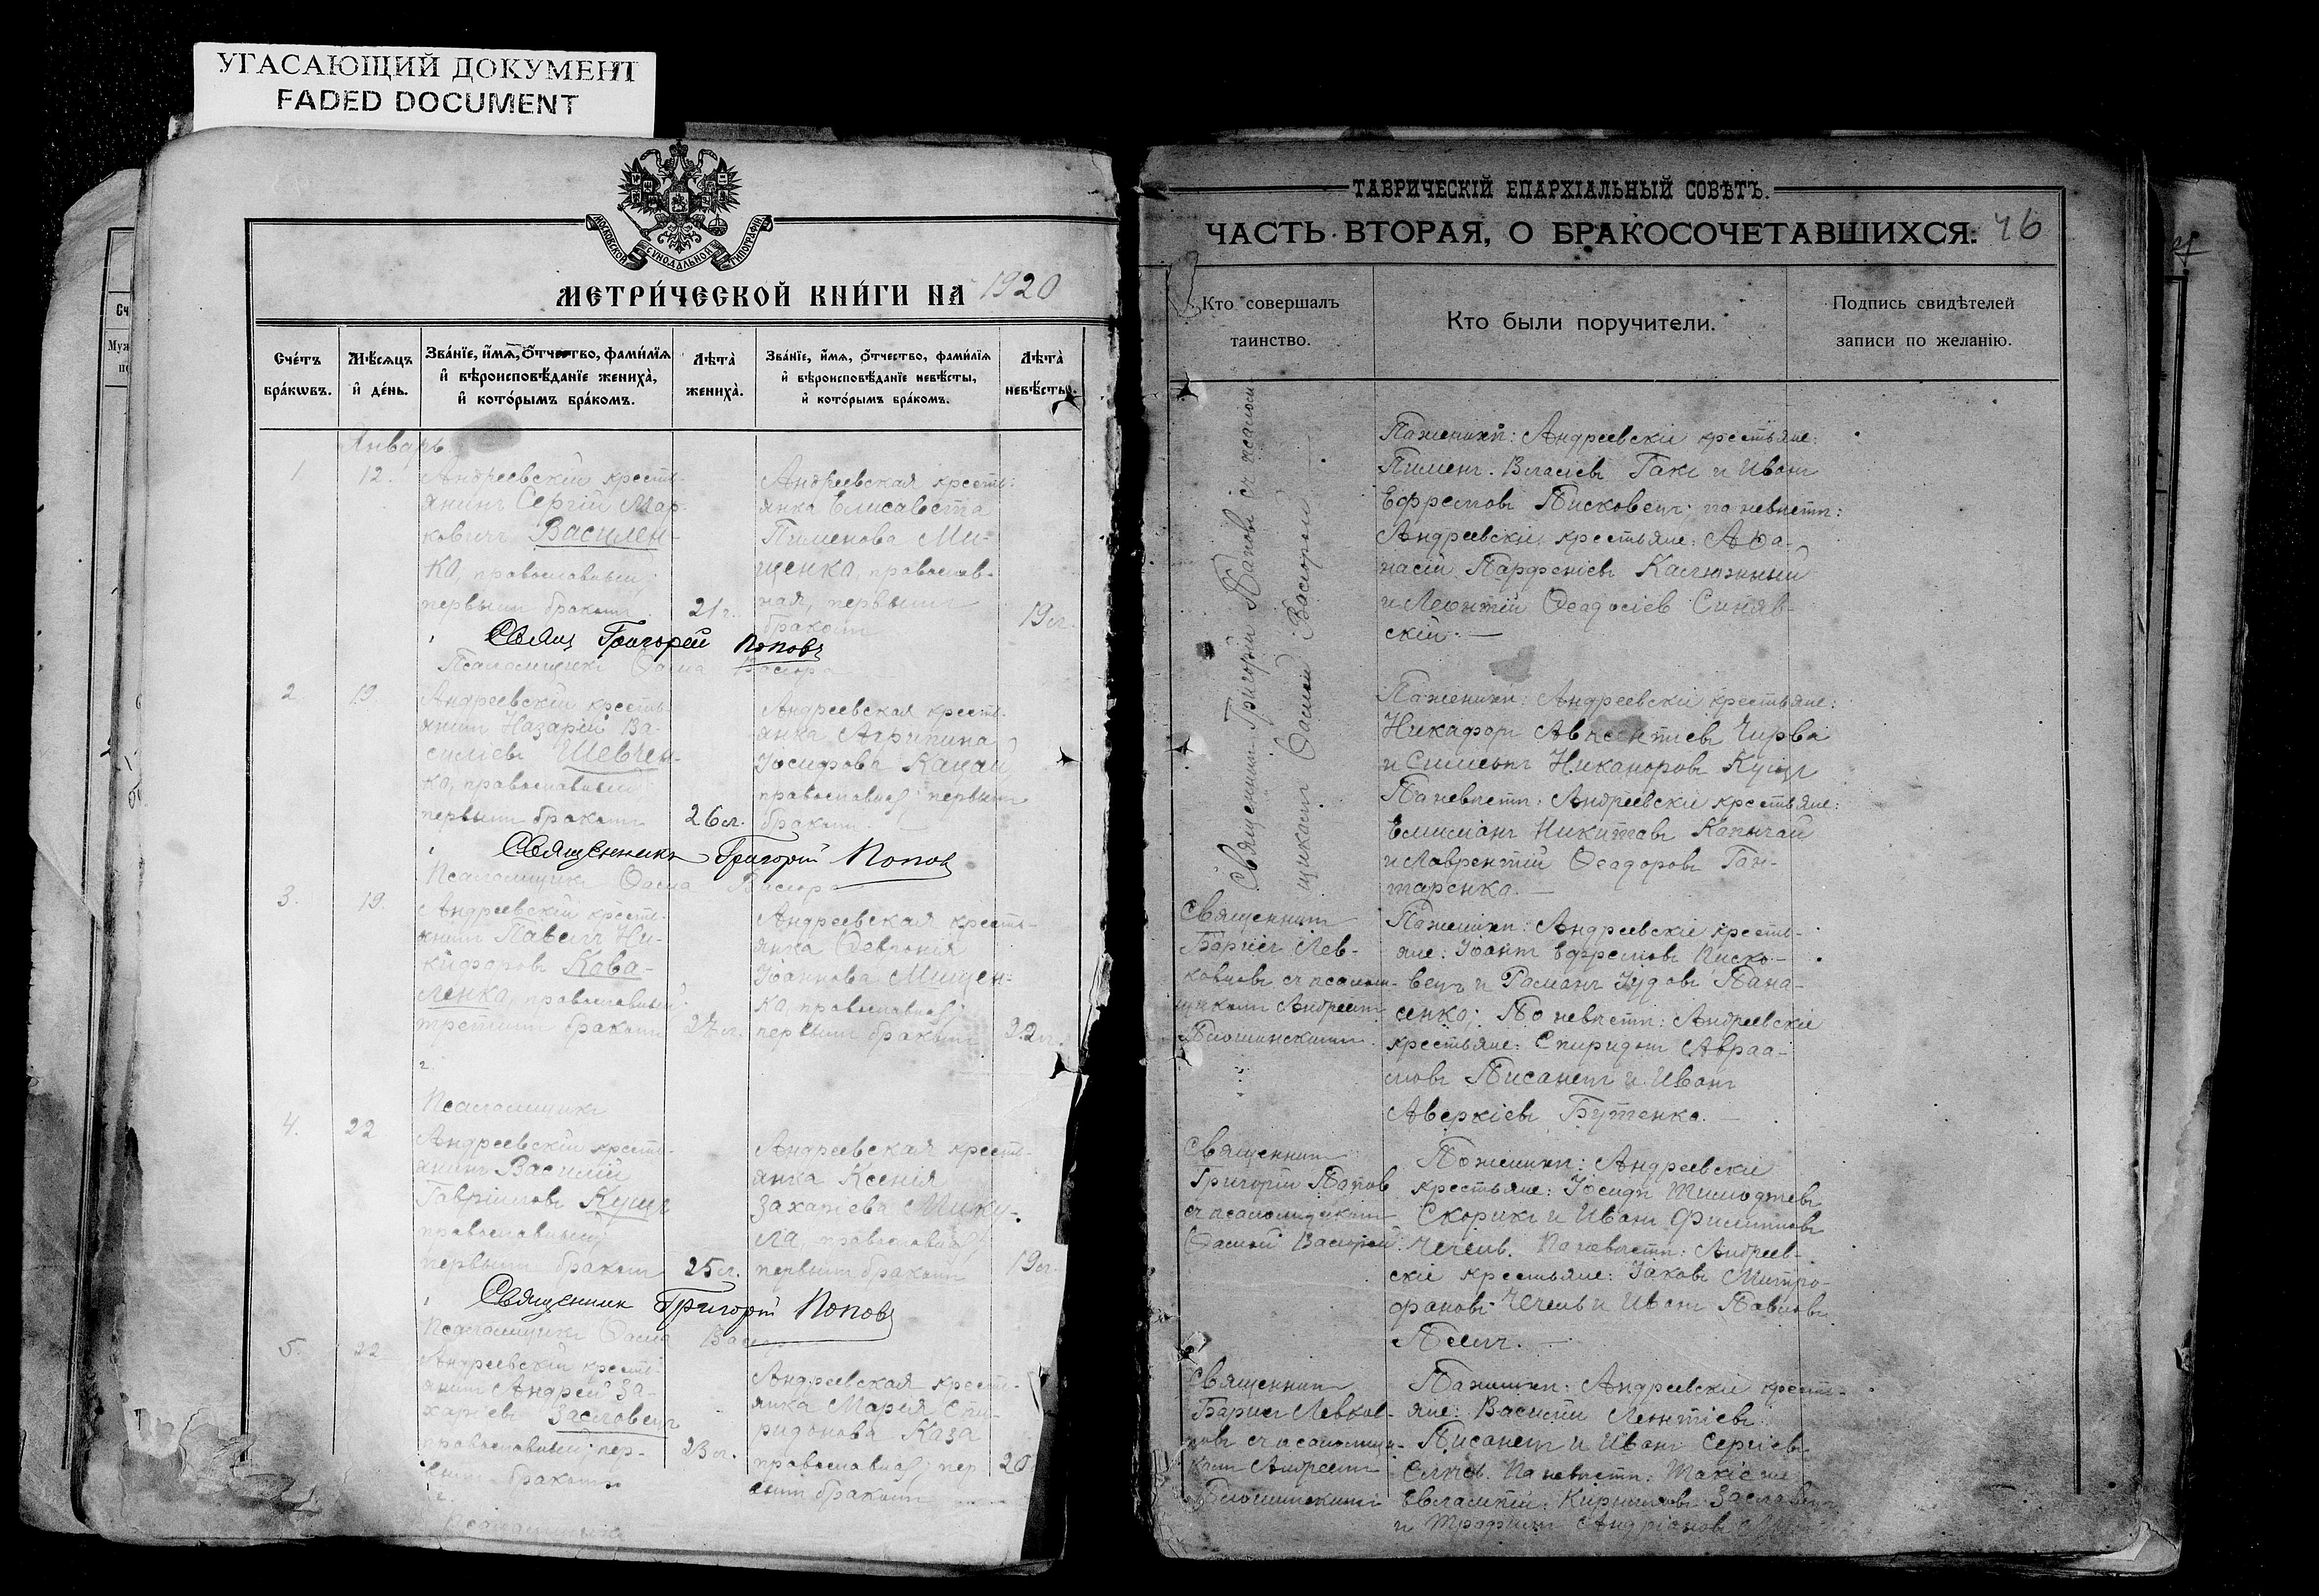 УГАСАЮЩИЙ ДОКУМЕНТ
FADED DOCUMENT
МОСКОВСКОЙ СѴНОДАЛЬНОЙ ТИПОГРАФІИ
МЕТРИ́ЧЕСКОЙ КНИ́ГИ НА 1920
Сче́тъ
бра́кѡвъ.
Мѣ́сяцъ
и҆ де́нь.
Зва́нїе, и҆́мѧ, ѻ҆́тчество, фами́лїѧ
и҆ вѣроисповѣ́данїе жениха̀,
и҆ кото́рымъ бра́комъ.
Лѣта̀
жениха̀.
Зва́нїе, и҆́мѧ, ѻ҆́тчество, фами́лїѧ
и҆ вѣроисповѣ́данїе невѣ́сты,
и҆ кото́рымъ бра́комъ.
Лѣта̀
невѣ́сты.
Январь
1
12.
Андреевскій кресть-
янинъ Сергій Мар-
ковичъ Василен-
ко, православный
первымъ бракомъ
21 г.
Андреевская кресть-
янка Елисавета
Пименова Ми-
щенко православ-
ная, первымъ
бракомъ
19 л.
Свящ Григорій Поповъ
Псаломщикъ Ѳома Васюра
2.
19.
Андреевскій кресть-
янинъ Назарій Ва-
силіевъ Шевчен-
ко, православный
первымъ бракомъ
26 л.
Андреевская кресть-
янка Агрипина
Іосифова Кацай
первымъ
бракомъ.
Священникъ Григорій Попов
Псаломщикъ Ѳома Васюра
3.
19.
Андреевскій кресть-
янинъ Павелъ Ни-
кифоровъ Кова-
ленко, православный
третимъ бракомъ
27 л.
Андреевская кресть-
янка Ѳеврония
Іоаннова Мищен-
ко,
первымъ бракомъ
22 л.
Псаломщикъ
4.
22
Андреевскій кресть-
янинъ Василій
Гавріиловъ Кущъ
православный
первымъ бракомъ
25 л.
Андреевская кресть-
янка Ксенія
Захаріева Мику-
ла,
первымъ бракомъ
19 л.
Священник Григорій Поповъ
Псаломщикъ Ѳома Васюра
5.
22
Андреевскій кресть-
янинъ Андрей За-
харіевъ Заславецъ
православный пер-
бракомъ
23 л.
Андреевская кресть-
янка Марія Спи-
ридонова Каза
пер
бракомъ
20
Псаломщикъ
ТАВРИЧЕСКІЙ ЕПАРХІАЛЬНЫЙ СОВѢТЪ.
ЧАСТЬ ВТОРАЯ, О БРАКОСОЧЕТАВШИХСЯ. 46
Кто совершалъ
таинство.
Кто были поручители.
Подпись свидѣтелей
записи по желанію.
Священникъ Григорій Поповъ съ псалом-
щикомъ Ѳомой Васюрой
По женихѣ: Андреевскіе крестьяне:
Пименъ Власіевъ Гакъ и Иванъ
Ефремовъ Písковецъ; по невѣстѣ:
Андреевскіе крестьяне: Аѳа-
насій Парфеніевъ Калюжный
и Леонтій Ѳеодосіев Синяв-
скій. —
По женихѣ: Андреевскіе крестьяне:
Никифоръ Авксентіевъ Чирва
и Симеонъ Никаноровъ Кущъ
По невѣстѣ: Андреевскіе крестьяне:
Емиліанъ Никитовъ Копычай
и Лаврентій Ѳеодоровъ Ган-
таренко. —
Священник
Борисъ Лев-
ковцовъ съ псалом-
щикомъ Андреем
По женихѣ: Андреевскіе кресть-
яне: Іоаннъ Ефремовъ Писко-
вецъ и Романъ Іудовъ Пана-
сенко; По невѣстѣ: Андреевскіе
крестьяне: Спиридонъ Авраа-
мовъ Писанецъ и Иванъ
Аверкіевъ Бутенко. —
Священник
Григорій Попов
съ псаломщиком
Ѳомой Васюрой.
По женихѣ: Андреевскіе
крестьяне: Іосифъ Тимоѳеевъ
Скорикъ и Иванъ Филипповъ
Чечель. По невѣстѣ: Андреев-
скіе крестьяне: Іаковъ Митро-
фановъ Чечель и Иванъ Павловъ
Псёлъ. —
Священник
Борисъ Левков-
цовъ съ псаломщи-
ком Андреем
По женихѣ: Андреевскіе кресть-
яне: Василій Леонтіевъ
Писанецъ и Иванъ Сергіевъ
По невѣстѣ: Такіе же
Евлампій Кирилловъ Заславецъ
и Трофимъ Андріановъ